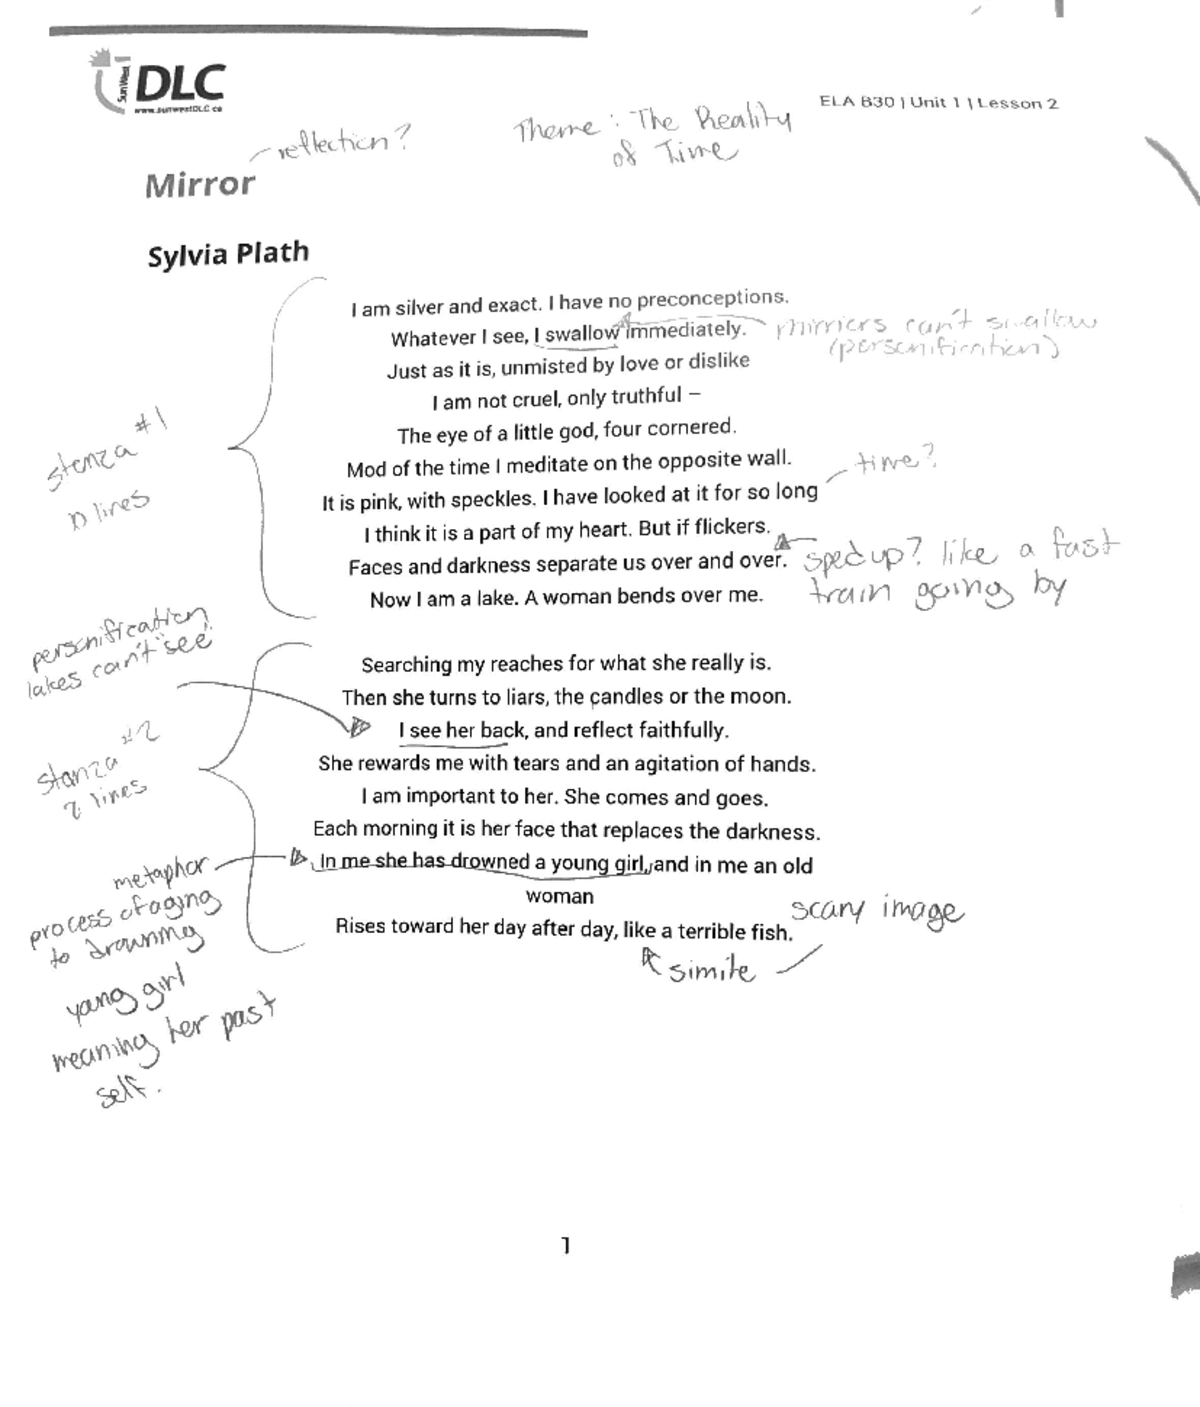 SunWest DLC
www.sunwestDLC.ca
ELA B30 | Unit 1 | Lesson 2
reflection?
Theme: The Reality
of Time
Mirror
Sylvia Plath
I am silver and exact. I have no preconceptions.
Whatever I see, I swallow immediately.
mirriors can't swallow
(personification)
Just as it is, unmisted by love or dislike
I am not cruel, only truthful –
The eye of a little god, four cornered.
Mod of the time I meditate on the opposite wall.
time?
It is pink, with speckles. I have looked at it for so long
I think it is a part of my heart. But if flickers.
Faces and darkness separate us over and over.
sped up? like a fast
train going by
Now I am a lake. A woman bends over me.
stanza #1
10 lines
personification
lakes can't "see"
Searching my reaches for what she really is.
Then she turns to liars, the candles or the moon.
I see her back, and reflect faithfully.
She rewards me with tears and an agitation of hands.
I am important to her. She comes and goes.
Each morning it is her face that replaces the darkness.
In me she has drowned a young girl, and in me an old
woman
Rises toward her day after day, like a terrible fish.
stanza #2
lines
scary image
simile
metaphor
process of aging
to drowning
yang girl
meaning her past
self.
1